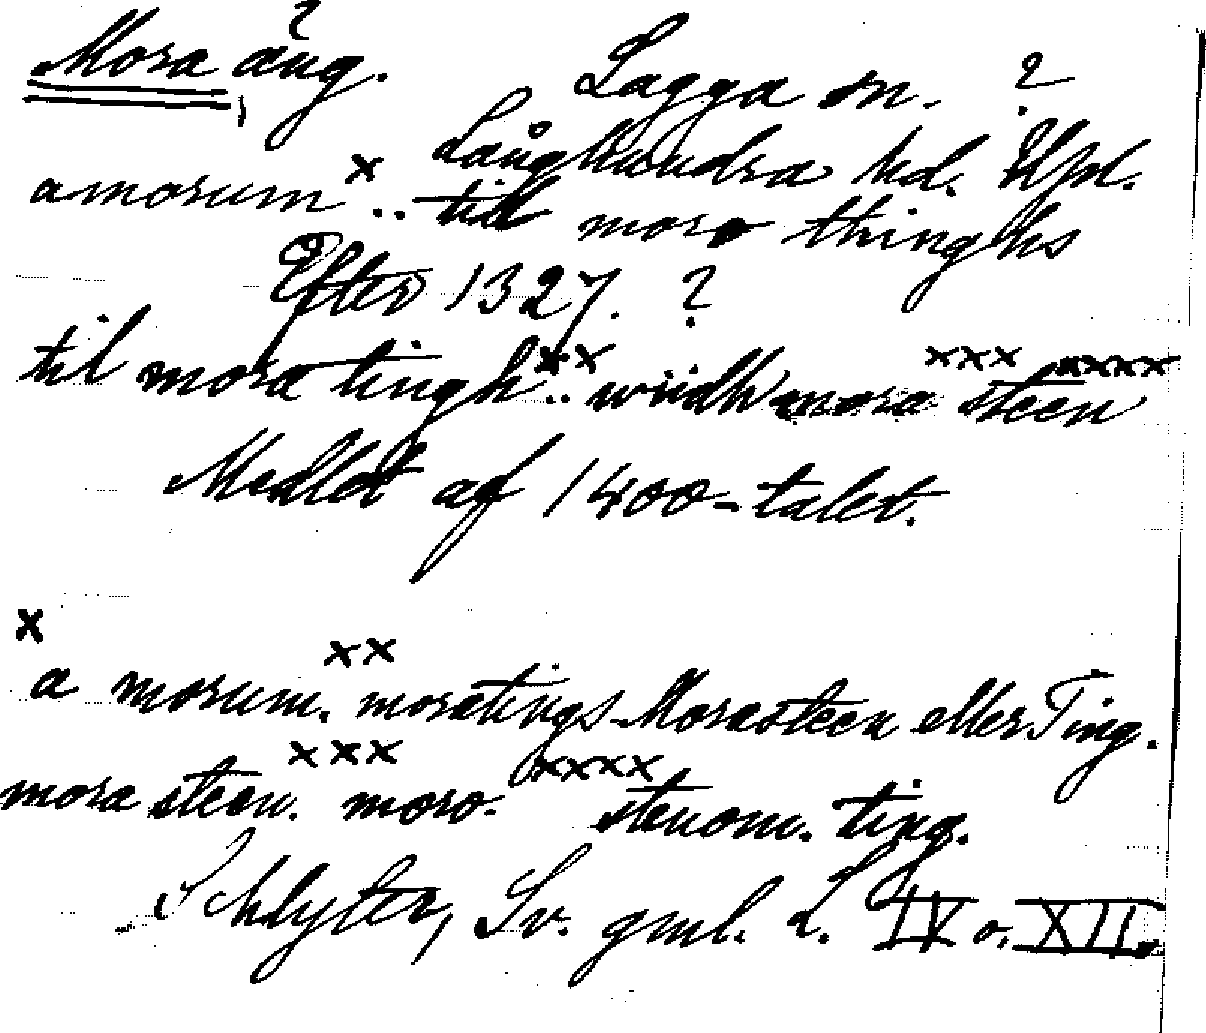 Mora äng. ? Lagga sn. ?
Långhundra hd. Upl.
amorum x .. till moro thinghs
Efter 1327. ?
til mora tingh xx .. widh mora xxx steen xxxx
Medlet af 1400-talet.
x a morum. xx moratings-Morasteen eller Ting.
mora steen. xxx moro. xxxx stenom. ting.
Schlyter, Sv. gml. L. IV o. XII.